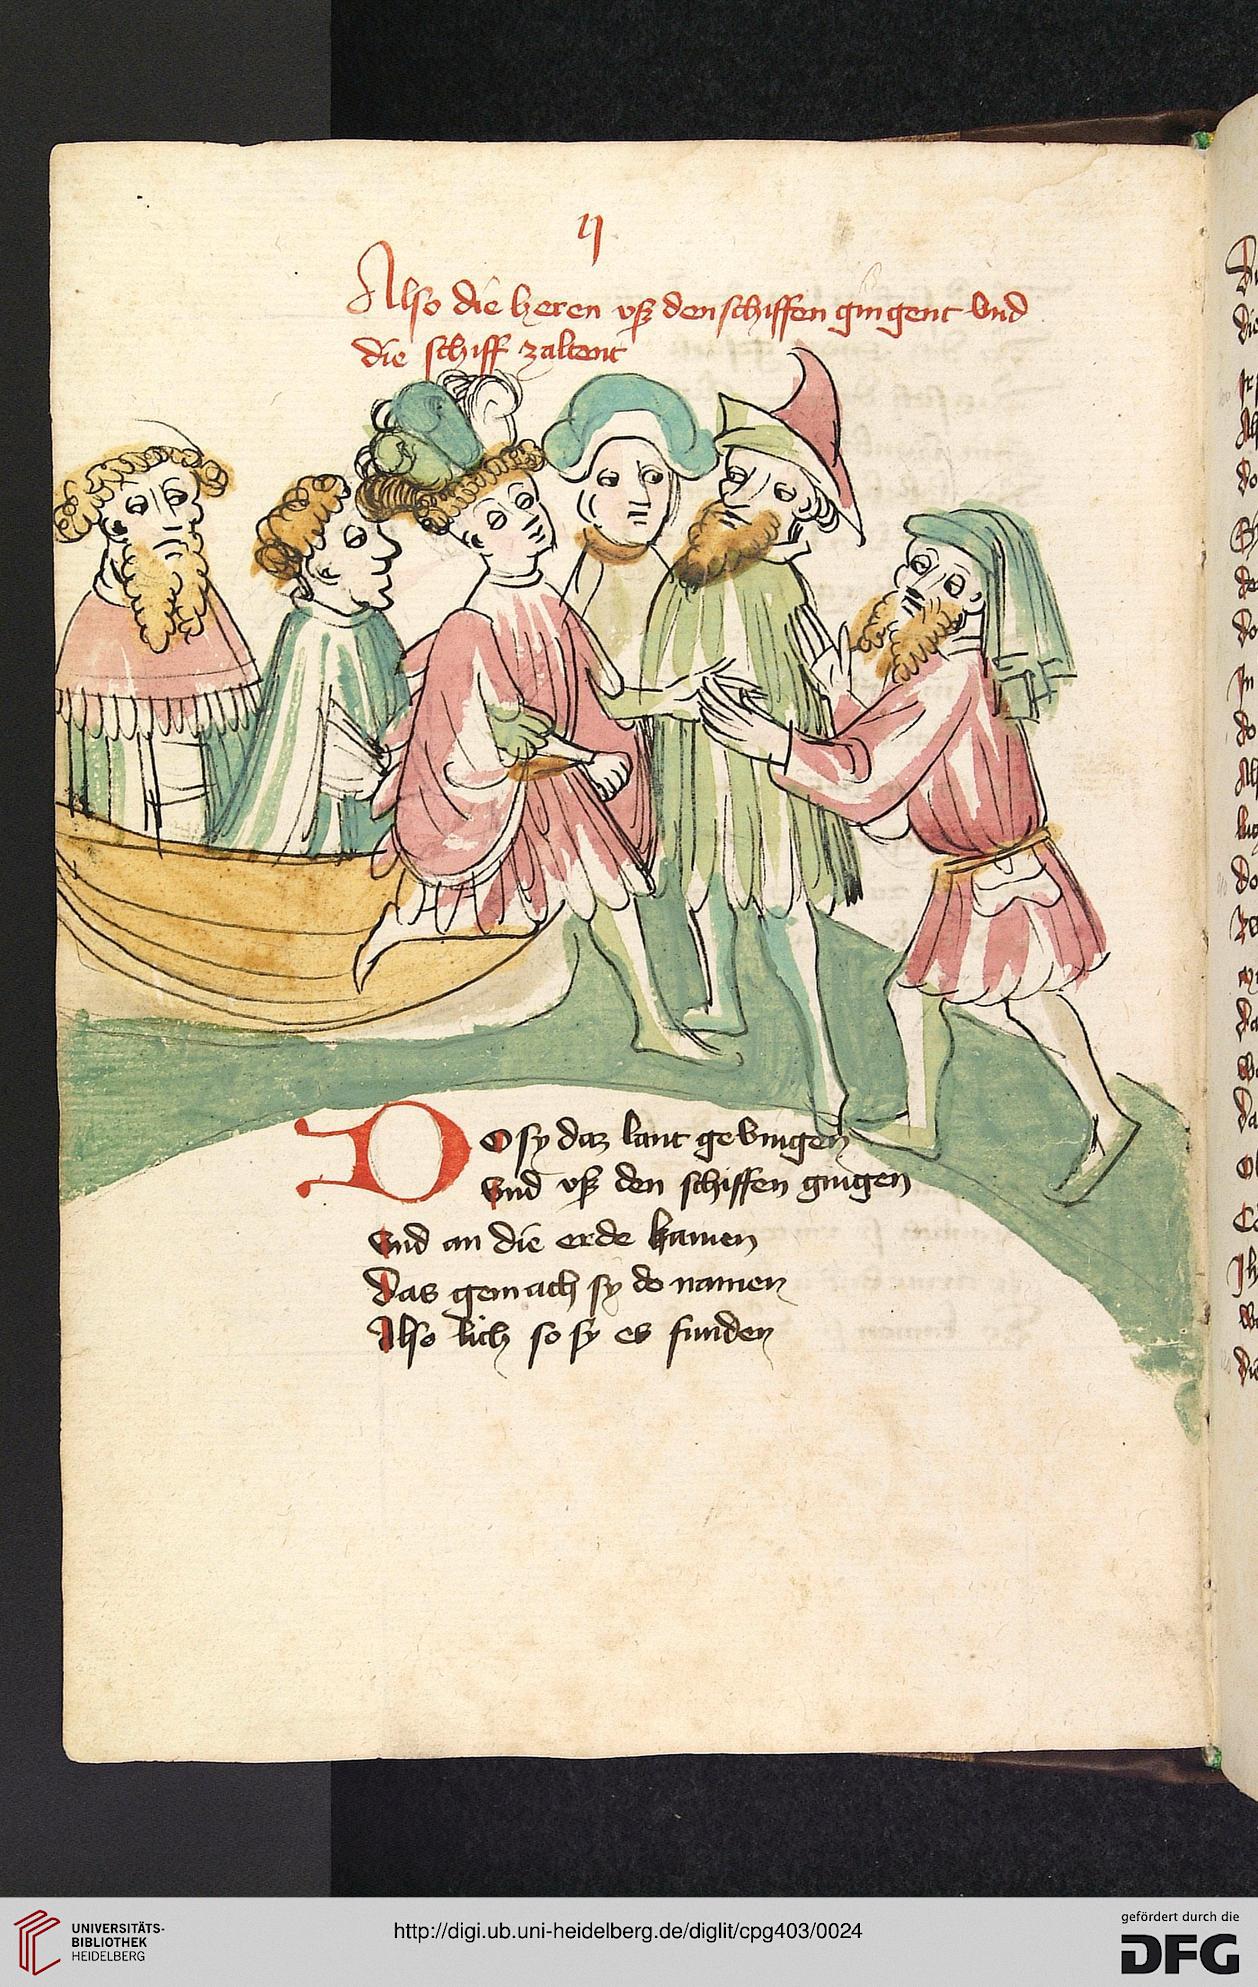 ij
Also die heren vß den schiffen gingent vnd
die schiff zaltent
Do sy daz lant gevingen
Vnd vß den schiffen gingen
Vnd an die erde kamen
Das gemach sy do namen
Also lich so sy es funden
UNIVERSITÄTS-
BIBLIOTHEK
HEIDELBERG
http://digi.ub.uni-heidelberg.de/diglit/cpg403/0024
gefördert durch die
DFG